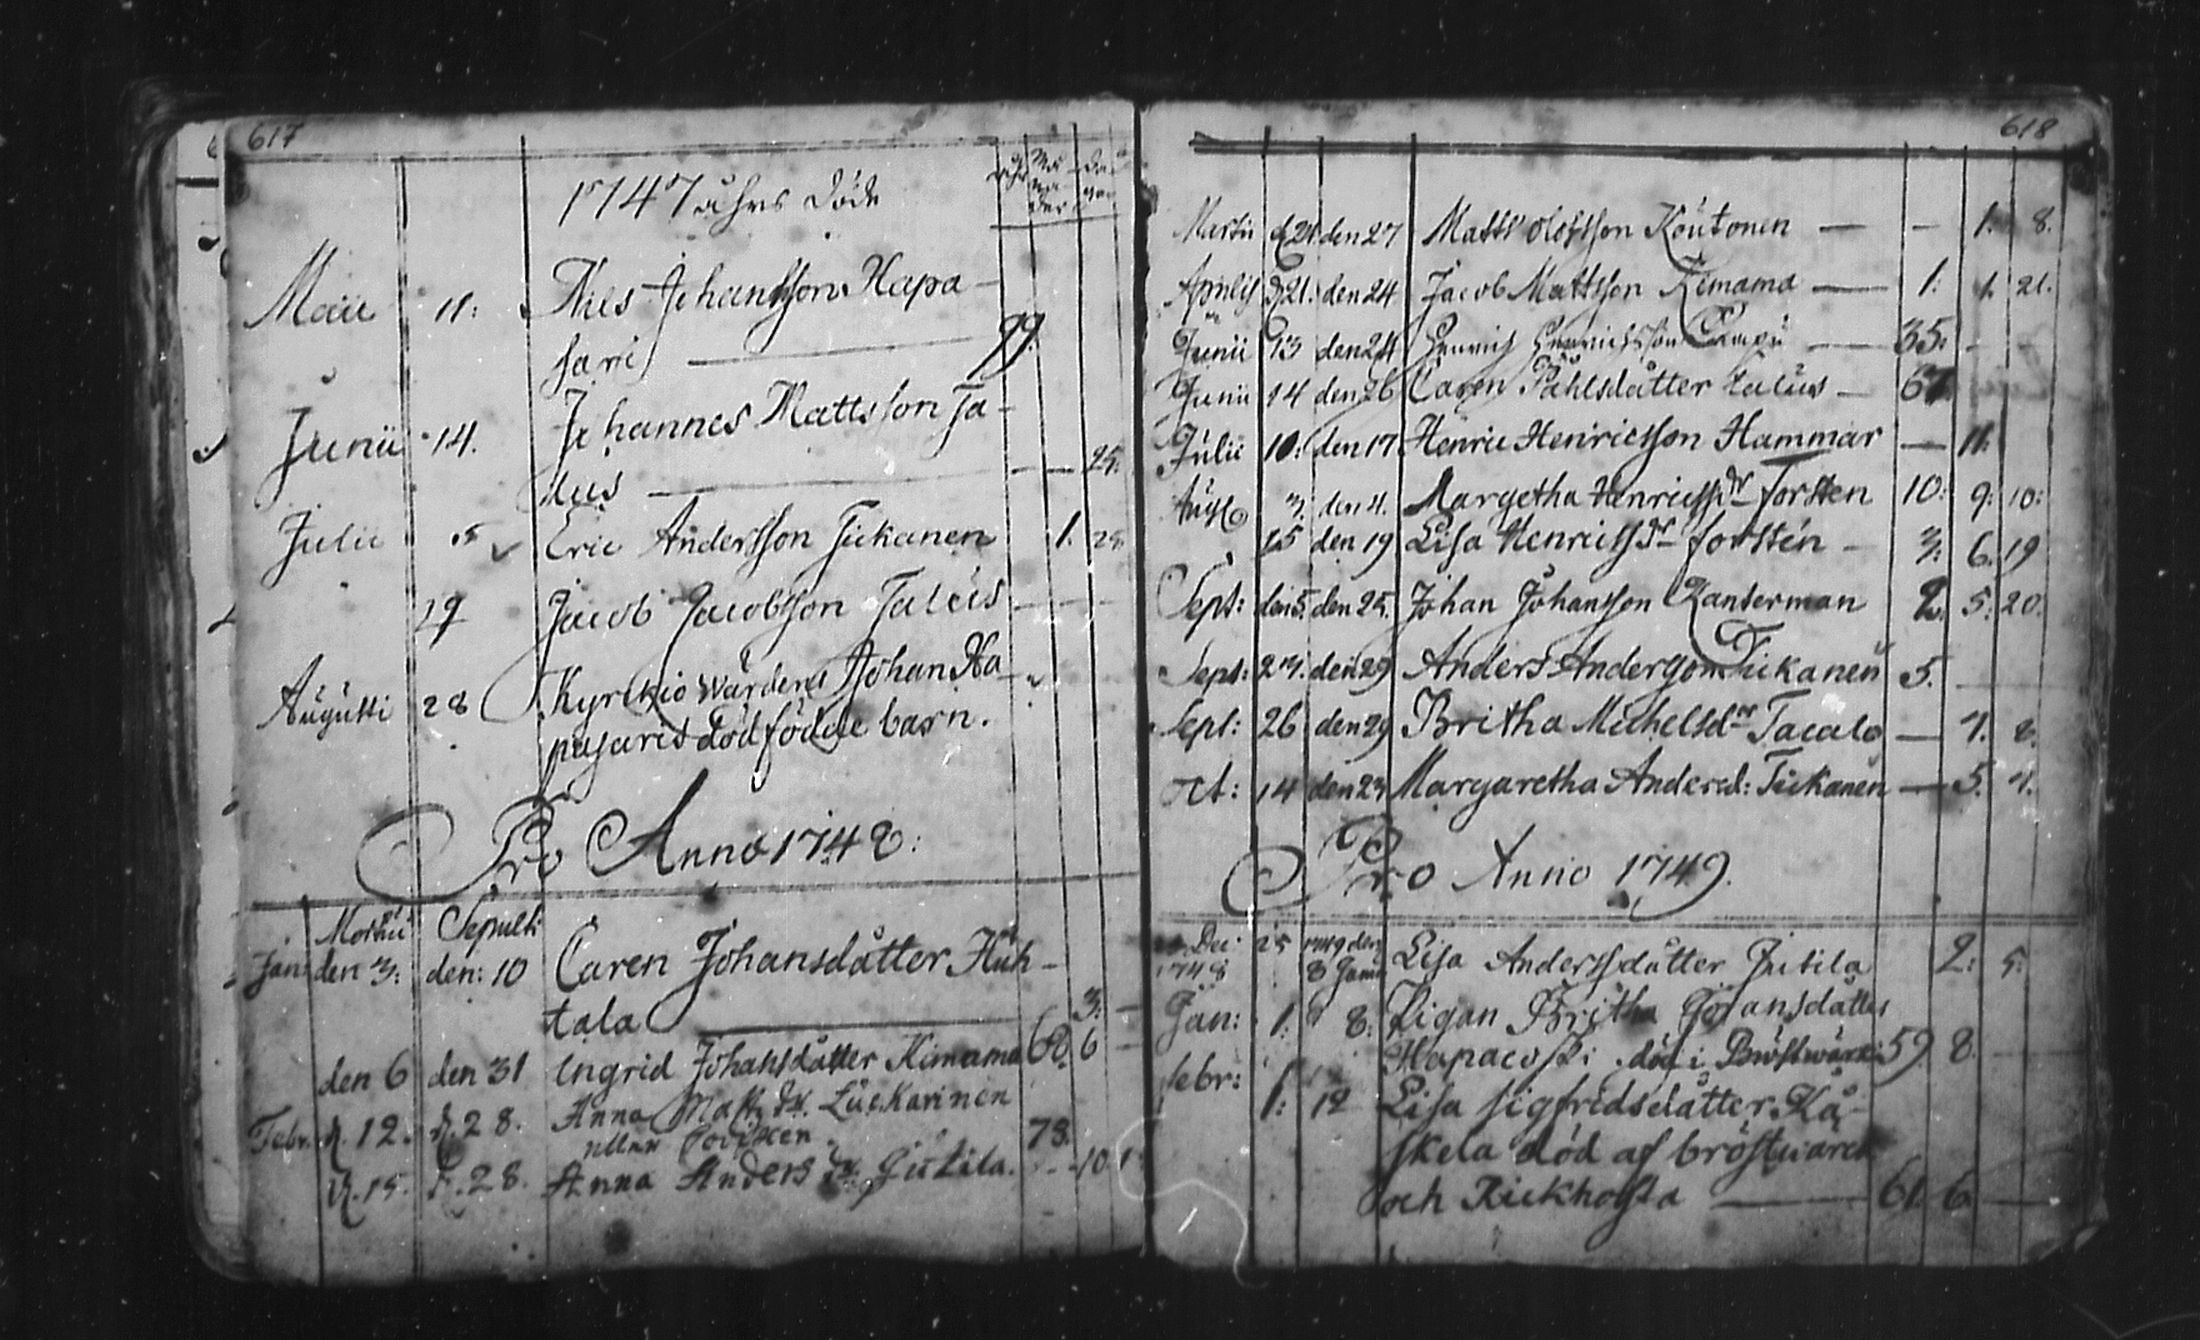 617
1747 åhrs döde
åhr Må na der da gar
Maii 11: Nils Johansson Hapa-
sari 99.
Junii 14. Johannes Mattsson Ta-
lus 25.
Julii 5 Eric Andersson Tickanen 1. 28
19 Jacob Jacobsson Talus
Augusti 28 Kyrckio wärdens Johan Ha
pasaris dödfödde barn.
Pro Anno 1748:
Mortui Sepulti
Jan: den 3: den: 10 Caren Johansdåtter Huh-
tala 3:
den 6 den 31 Ingrid Johansdåtter Kimama 60. 6
Febr. d. 12. d. 28. Anna Matz dr. Luckarinen
eller 73.
d. 15. d. 28. Anna Anders dr. Jutila. 10 1
618
Martii d 21. den 27 Matts Olofsson Koutonen 1. 8.
Aprilis d 21. den 24 Jacob Mattsson Kimama 1: 1. 21.
Junii 13 den 24 Henrich Henrichsson 35:
Junii 14 den 26 Caren Påhlsdåtter talus 67
Julii 10: den 17 Henric Henricsson Hammar 11.
Aug 3: den 4. Margetha Henricsdr Forsten 10: 9: 10:
15 den 19 Lisa Henricsdr forsten 3: 6. 19
Sept: den 5. den 25. Johan Johansson Ranterman 2. 5: 20.
Sept: 23. den 29 Anders Andersson Tickanen 5.
Sept: 26 den 29 Britha Michelsdr Tacalo 7. 8.
oct: 14 den 23 Margaretha Andersd: Tickanen 5. 7.
Pro Anno 1749.
Dec: 25 1749 den Lisa Andersdåtter Jutila 2: 5:
1748 8 Janu
Jan: 1: 8: Pigan Britha Göransdåtter
Hapacoski död i Bröstwärk 59 8.
febr: 1: 12 Lisa Sigfridsdåtter Kå-
skela död af bröstwärck
och Rickhosta 61. 6